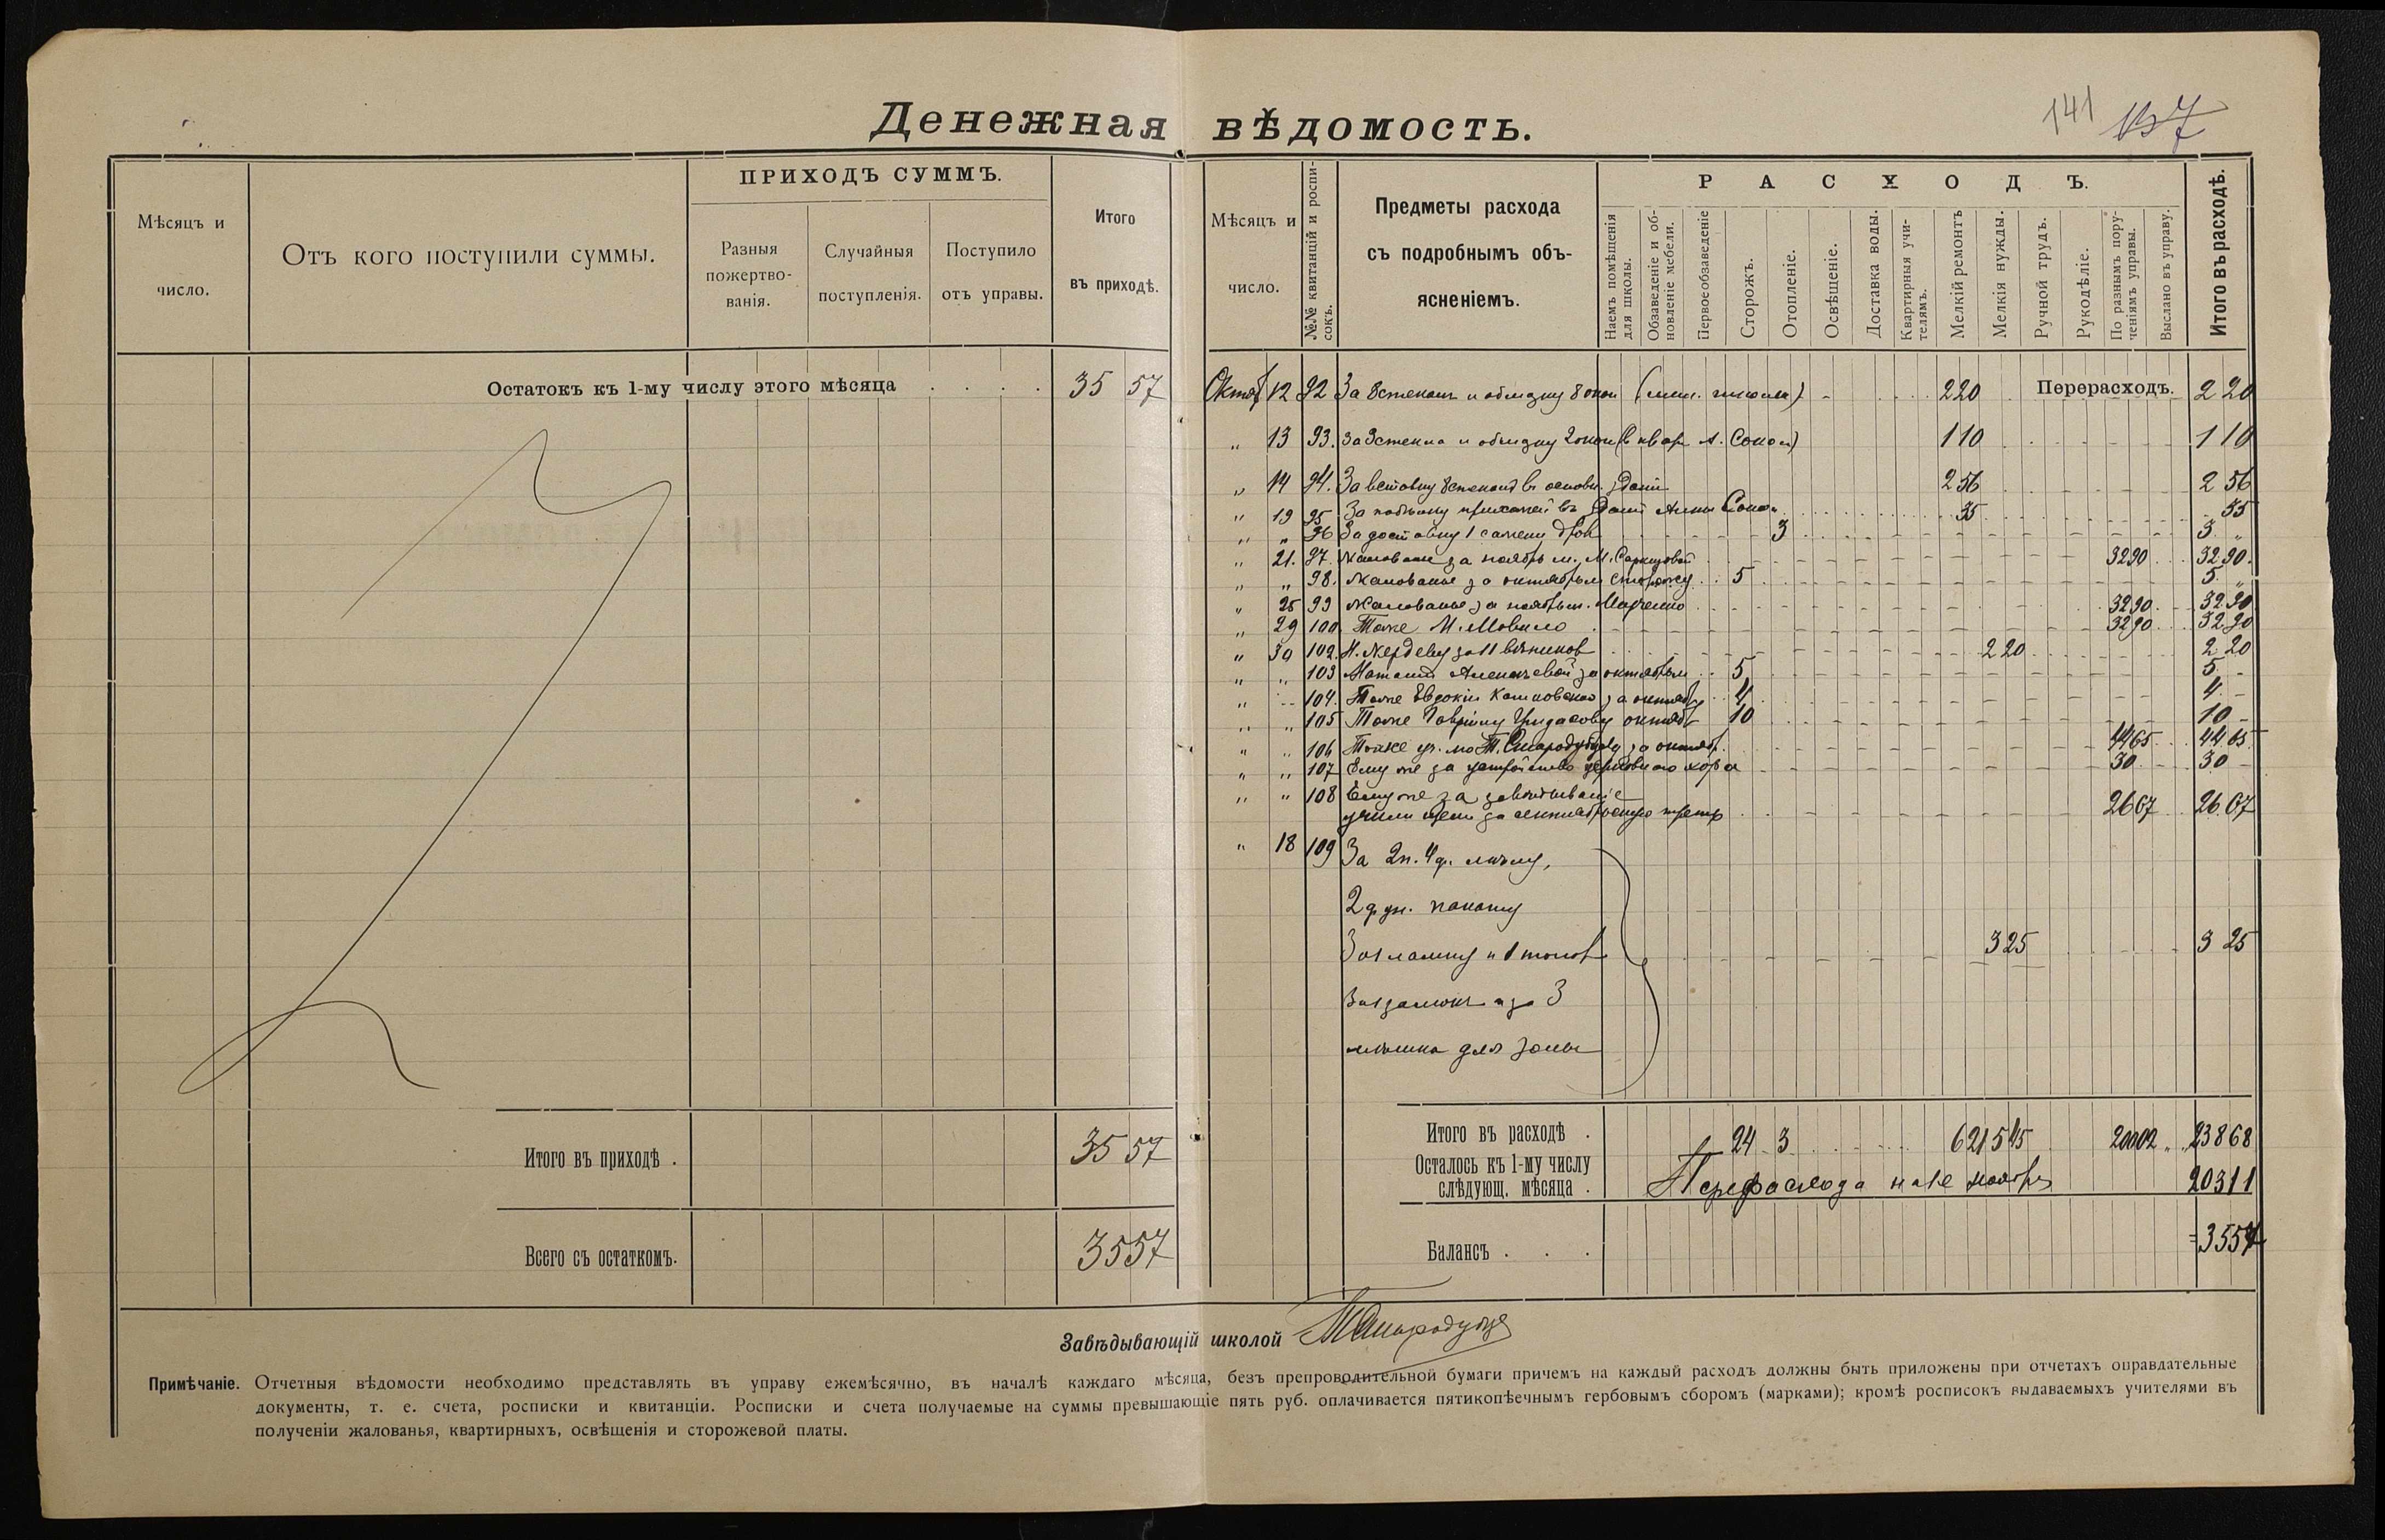 141 137
Денежная вѣдомость.
Мѣсяцъ и число.
Отъ кого поступили суммы.
ПРИХОДЪ СУММЪ.
Разныя пожертво-
ванія.
Случайныя поступленія.
Поступило отъ управы.
Итого въ приходѣ.
Мѣсяцъ и число.
№№ квитанцій и роспи-
сокъ.
Предметы расхода
съ подробнымъ объ-
ясненіемъ.
РАСХОДЪ.
Наемъ помѣщенія для школы.
Обзаведеніе и об-
новленіе мебели.
Первоеобзаведеніе
Сторожъ.
Отопленіе.
Освѣщеніе.
Доставка воды.
Квартирныя учи-
телямъ.
Мелкій ремонтъ
Мелкія нужды.
Ручной трудъ.
Рукодѣліе.
По разнымъ пору-
ченіямъ управы.
Выслано въ управу.
Итого въ расходѣ.
Остатокъ къ 1-му числу этого мѣсяца . . . . 35 57
Перерасходъ.
Октяб 12 92 За 8 стеколъ и обмазку 8 окон 220 2 20
„ 13 93. за 3 стекла и обмазку 2 окон (в квар. А. Соко 110 1 10
„ 14 94. За вставку 8 стекол в основн. здании 256 2 56
„ 19 95 За Анны Соко 35 35
„ „ 96 За доставку 1 сажени дров 3 3 „
„ 21. 97. Жалованье за ноябрь м. М. 3290 32 90
„ „ 98. Жалованье за октябрь м сторожу 5 5 „
„ 25 99 Жалованье за ноябрь м. Марченко 3290 32 90
„ 29 100 Тоже М. Мовило 3290 32 90
„ 30 102. Н. за 11 вѣников 220 2 20
„ „ 103 за октябрь м 5 5 -
„ „ 104. Тоже Евдокіи за октябрь 4 4 -
„ „ 105 Тоже Гаврилу Гридасову октябр 10 10 -
„ „ 106 Тоже уч. Т. Стародубцеву за октяб. 4465 44 65
„ „ 107 Ему же за устройство церковного хора 30 30 -
„ „ 108 Ему же за завѣдываніе
училищем за сентябрьскую треть 2667 26 67
„ 18 109 За 2п. 4ф. мѣлу,
2 фун.
За 1 лампу и 1
За 1 замокъ и за 3 325 3 25
мѣшка для золы
Итого въ приходѣ . 35 57
Всего съ остаткомъ. 3557
Итого въ расходѣ . 24 3 621 545 20002 23868
Осталось къ 1-му числу
слѣдующ. мѣсяца . Перерасхода на 1е ноября 20311
Балансъ . . . =3557
Завѣдывающій школой
Примѣчаніе. Отчетныя вѣдомости необходимо представлять въ управу ежемѣсячно, въ началѣ каждаго мѣсяца, безъ препроводительной бумаги причемъ на каждый расходъ должны быть приложены при отчетахъ оправдательные
документы, т. е. счета, росписки и квитанціи. Росписки и счета получаемые на суммы превышающіе пять руб. оплачивается пятикопѣечнымъ гербовымъ сборомъ (марками); кромѣ росписокъ выдаваемыхъ учителями въ
полученіи жалованья, квартирныхъ, освѣщенія и сторожевой платы.